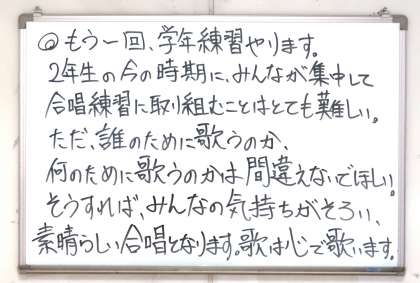 ◎もう一回、学年練習やります。
2年生の今の時期に、みんなが集中して
合唱練習に取り組むことはとても難しい。
ただ、誰のために歌うのか、
何のために歌うのかは間違えないでほしい。
そうすれば、みんなの気持ちがそろい、
素晴らしい合唱となります。歌は心で歌います。